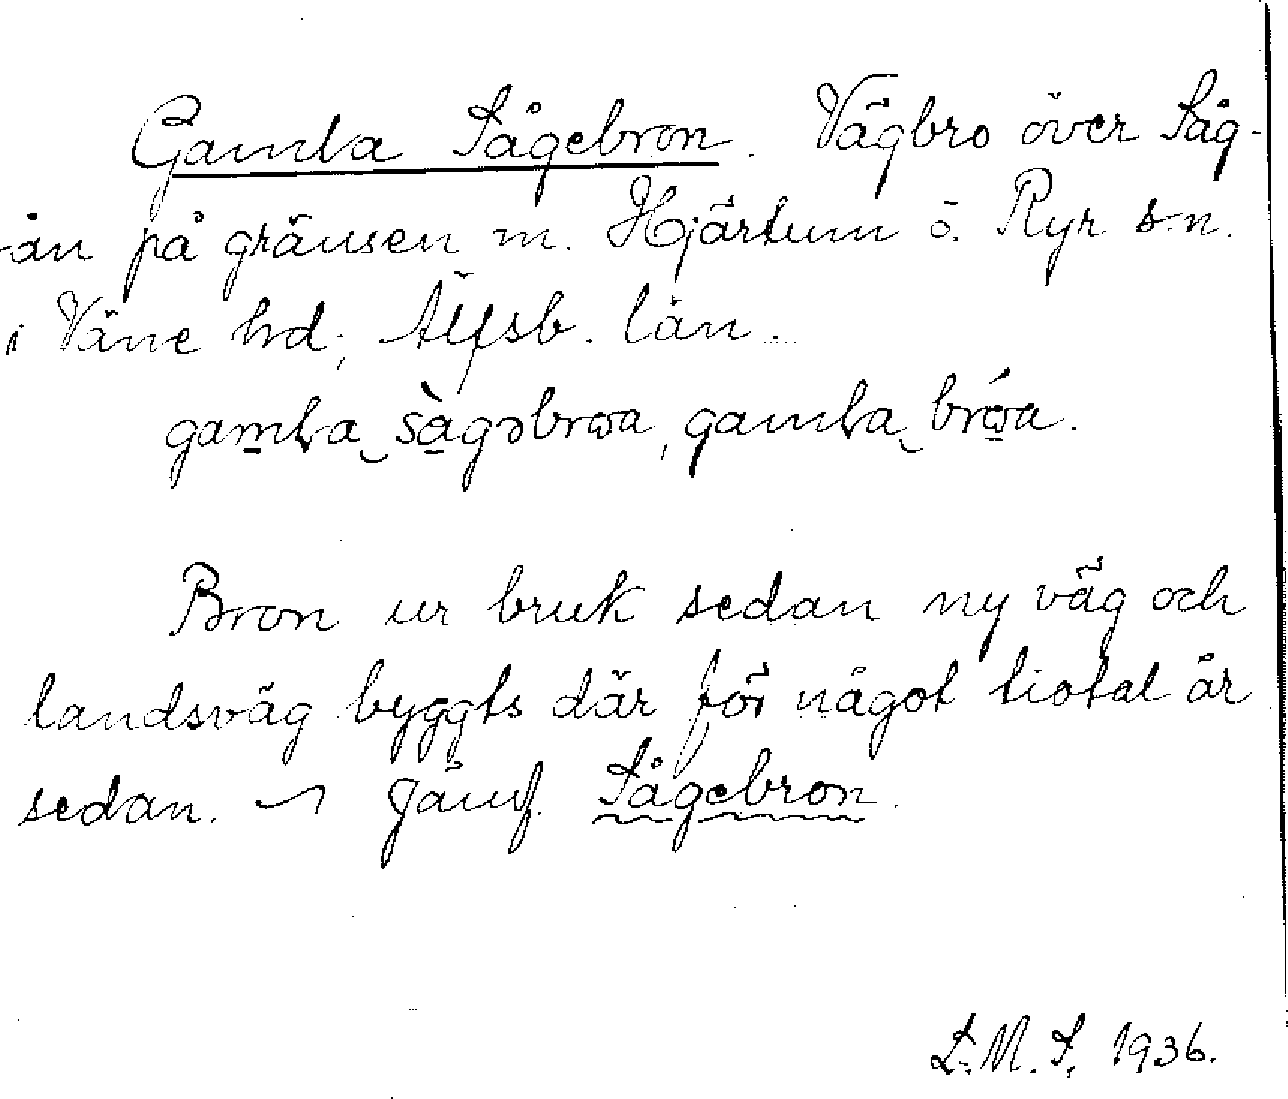 Gamla Sågebron. Vägbro över Såg-
ån på gränsen m. Hjärtum o. Ryr s:n.
i Väne hd; Älfsb. län.
gamla sàgəbroa, gamla bróa.
Bron ur bruk sedan ny väg och
landsväg byggts där för något tiotal år
sedan. ~ Jämf. Sågebron.
L. M. S. 1936.